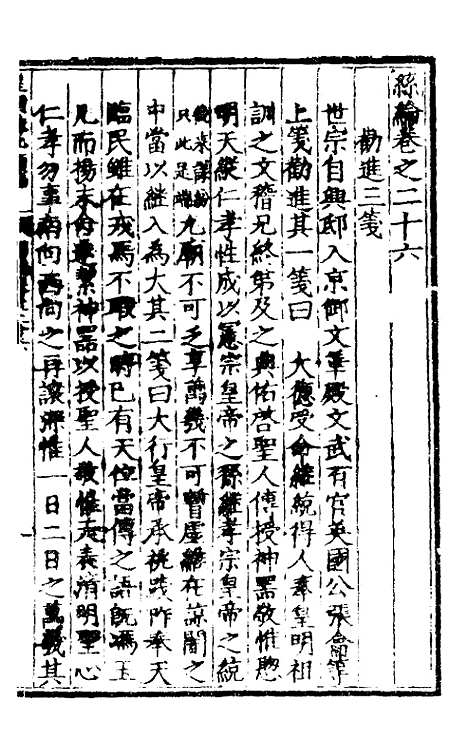 絲綸卷之二十六
勸進三箋
世宗自興邸入京御文華殿文武百官英國公張侖等
上箋勸進其一箋曰 大德受命繼統得人奉皇明祖
訓之文稽兄終弟及之典佑啓聖人傳授神器敬惟聰
明天縱仁孝性成以憲宗皇帝之孫繼孝宗皇帝之統
只此是 九廟不可乏享萬幾不可暫虛總在諒闇之
中當以繼入為大其二箋曰大行皇帝承祧踐阼奉天
臨民雖在戎馬不暇之時已有天位當傳之語既馮玉
几而揚末命 神器以授聖人敬惟 清明聖心
仁孝勿事南向西向之再讓深惟一日二日之萬幾其